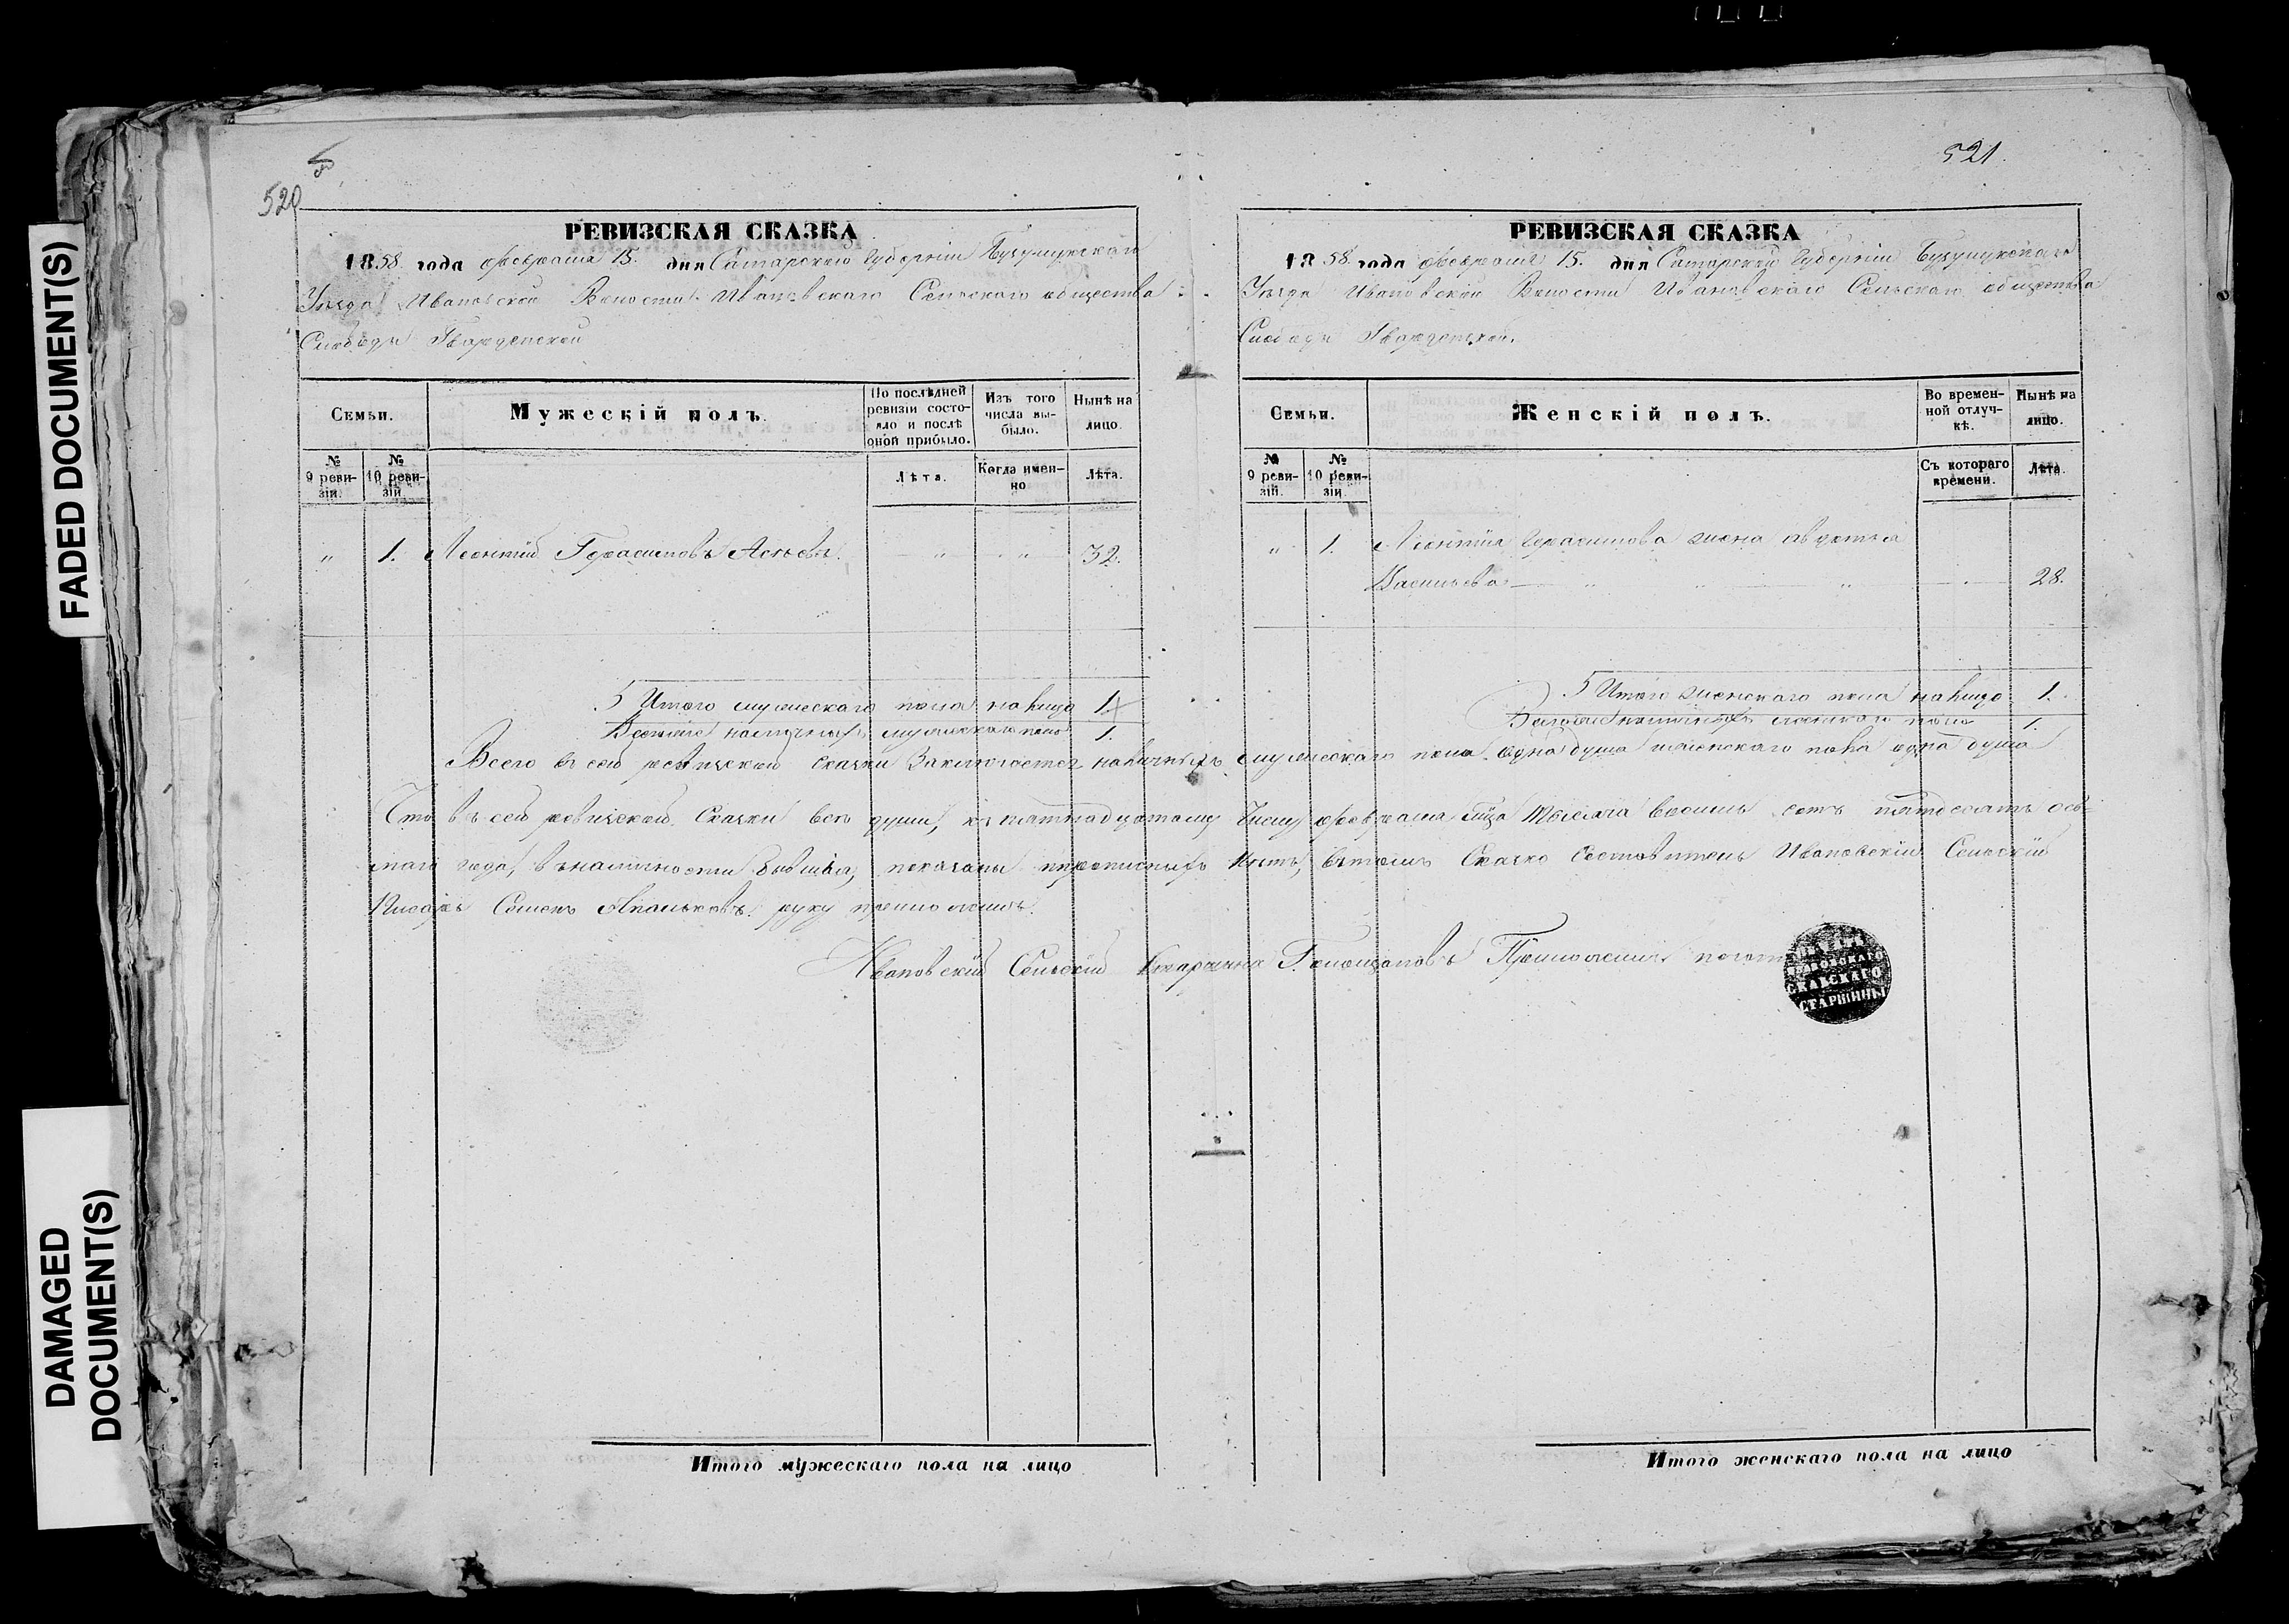 FADED DOCUMENT(S)
DAMAGED
DOCUMENT(S)
520
РЕВИЗСКАЯ СКАЗКА
1858 года февраля 15. дня Самарской Губерніи Бузулукскаго
Уѣзда Ивановской Волости Ивановскаго Сельскаго общества
Слободы Гвардейской
Семьи.
Мужескій полъ.
По послѣдней ревизіи состояло и послѣ оной прибыло.
Изъ того числа выбыло.
Нынѣ на лицо.
№ 9 ревизіи.
№ 10 ревизіи
Лѣта.
Когда именно
Лѣта.
„ 1. Леонтій Герасимовъ „ „ 32.
5 Итого мужескаго пола на лицо 1.
наличныхъ мужескаго пола 1.
521.
РЕВИЗСКАЯ СКАЗКА
1858 года февраля 15. дня Самарской Губерніи Бузулукскаго
Уѣзда Ивановской Волости Ивановскаго Сельскаго общества
Слободы Гвардейской.
Семьи.
Женскій полъ.
Во временной отлучкѣ.
Нынѣ на лицо.
№ 9 ревизіи.
№ 10 ревизіи.
Съ котораго времени.
Лѣта.
„ 1. Леонтія Герасимова жена Авдотья
Васильева „ „ 28.
5 Итого женскаго пола на лицо 1.
наличныхъ женскаго пола 1.
Всего въ сей ревизской сказки заключается наличныхъ мужескаго пола одна душа женскаго пола одна душа
Что въ сей ревизской Сказки всѣ души, къ пятнадцатому Числу февраля тысяча восемь сотъ пятдесятъ ось-
маго года, въ наличности бывшія, показаны прописныхъ нѣтъ, въ томъ Сказко составитель Ивановскій Сельскій
Писарь Семенъ руку приложилъ.
Ивановскій Сельскій Старшина Приложилъ
СТАРШИНЫ
Итого мужескаго пола на лицо
Итого женскаго пола на лицо